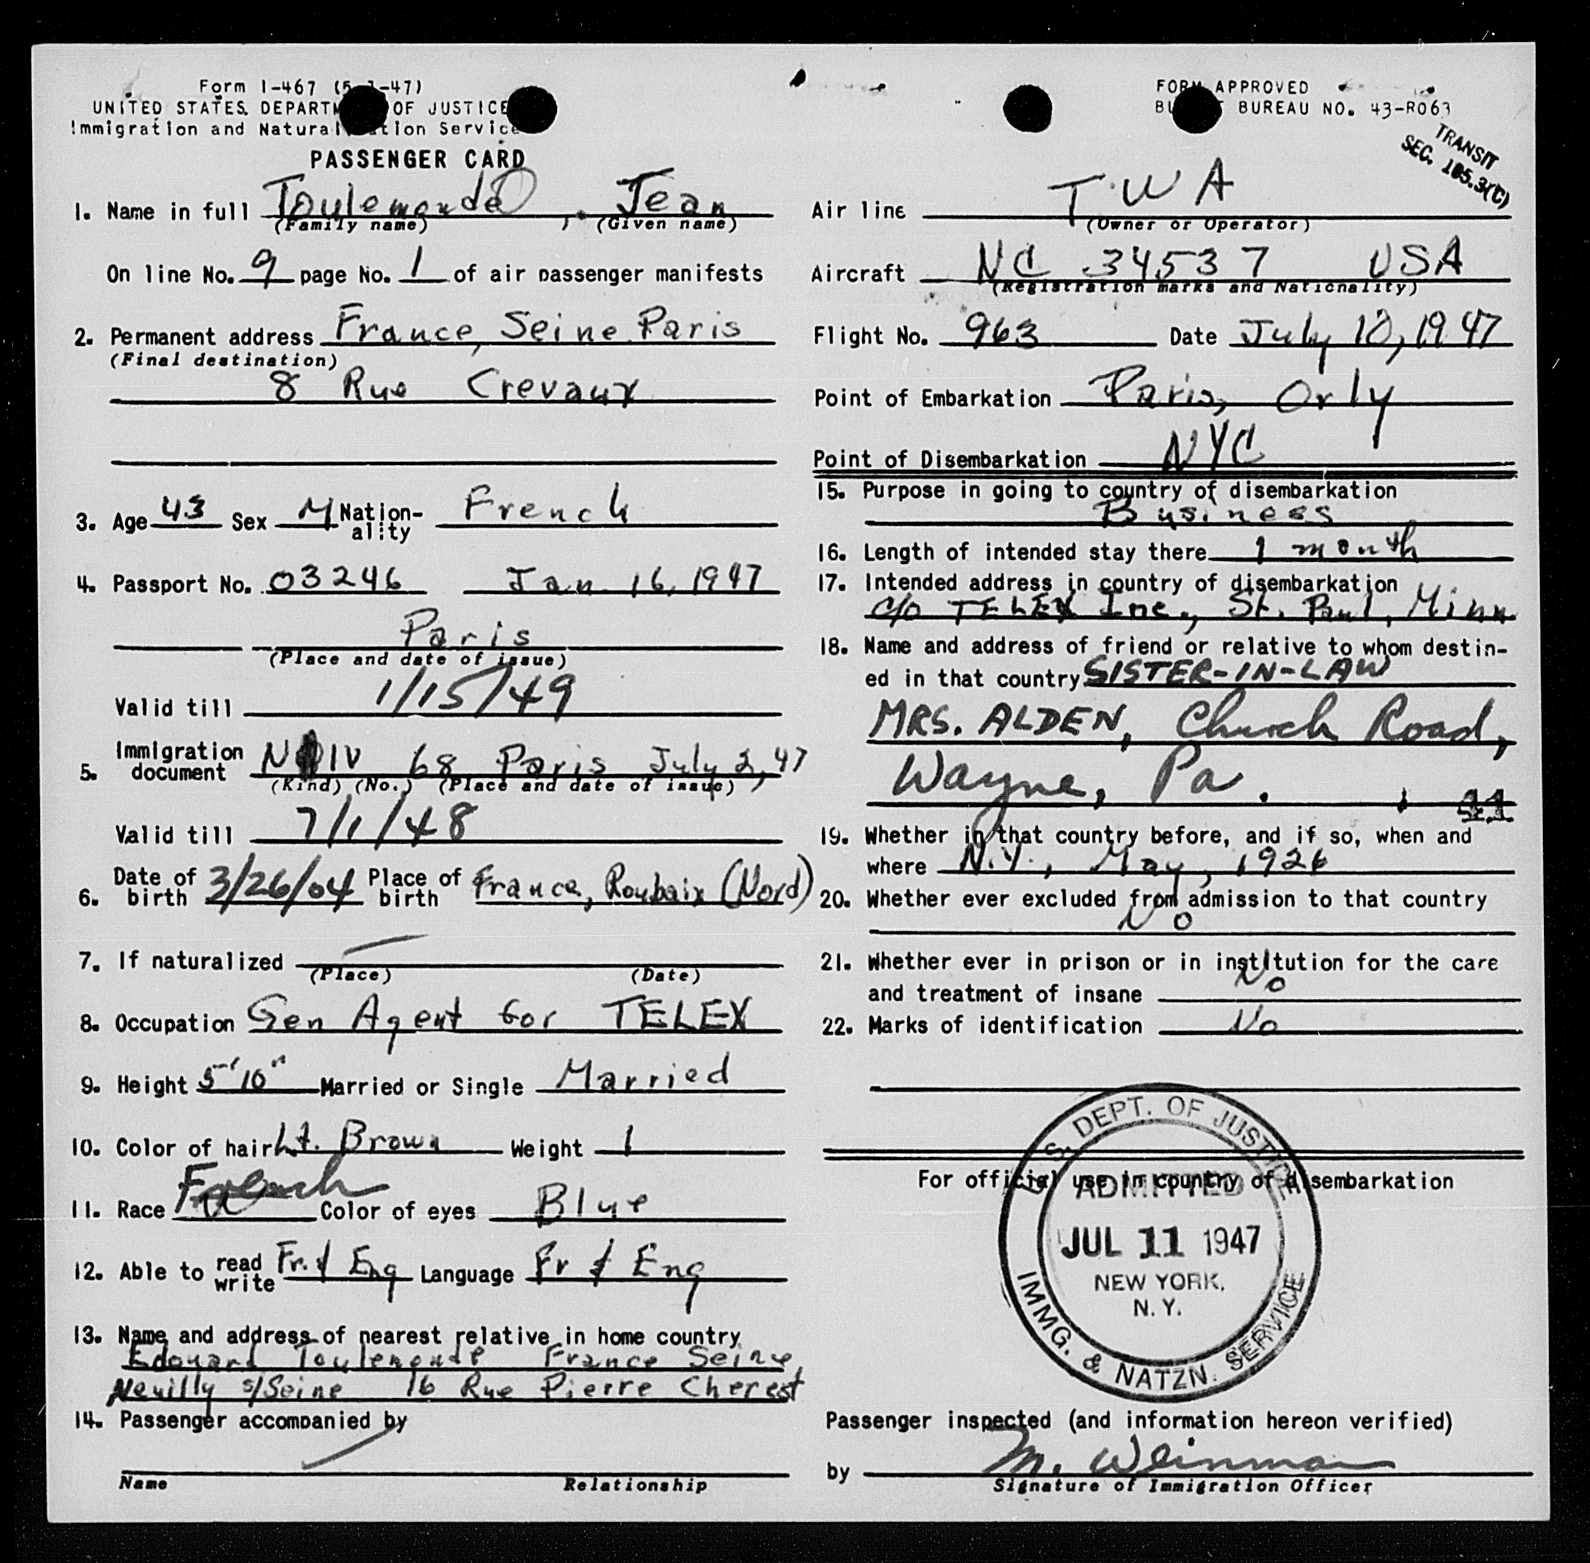 Form I-467 (5-1-47)
UNITED STATES DEPARTMENT OF JUSTICE
Immigration and Naturalization Service
PASSENGER CARD
1. Name in full Toulemonde, Jean
(Family name) (Given name)
On line No. 9 page No. 1 of air passenger manifests
2. Permanent address France, Seine Paris
(Final destination)
8 Rue Crevaux
3. Age 43 Sex M Nation-ality French
4. Passport No. 03246 Jan 16, 1947
Paris
(Place and date of issue)
Valid till 1/15/49
5. Immigration document NIV 68 Paris July 2, 47
(Kind) (No.) (Place and date of issue)
Valid till 7/1/48
6. Date of birth 3/26/04 Place of birth France, Roubaix (Nord)
7. If naturalized
(Place) (Date)
8. Occupation Gen Agent for TELEX
9. Height 5'10" Married or Single Married
10. Color of hair Lt. Brown Weight 1
11. Race French Color of eyes Blue
12. Able to read write Fr. & Eng Language Fr & Eng
13. Name and address of nearest relative in home country
Edouard Toulemonde France Seine,
Neuilly s/Seine 16 Rue Pierre Cherest
14. Passenger accompanied by
Name Relationship
FORM APPROVED
BUREAU NO. 43-R063
TRANSIT
SEC. 105.3(C)
Air line TWA
(Owner or Operator)
Aircraft NC 34537 USA
(Registration marks and Nationality)
Flight No. 963 Date July 10, 1947
Point of Embarkation Paris, Orly
Point of Disembarkation NYC
15. Purpose in going to country of disembarkation
Business
16. Length of intended stay there 1 month
17. Intended address in country of disembarkation
c/o TELEX Inc., St. Paul, Minn
18. Name and address of friend or relative to whom destin-
ed in that country SISTER-IN-LAW
MRS. ALDEN, Church Road,
Wayne, Pa.
19. Whether in that country before, and if so, when and
where N.Y., May, 1926
20. Whether ever excluded from admission to that country
No
21. Whether ever in prison or in institution for the care
and treatment of insane No
22. Marks of identification No
For official use in country of disembarkation
U.S. DEPT. OF JUSTICE
ADMITTED
JUL 11 1947
NEW YORK,
N. Y.
IMMG. & NATZN. SERVICE
Passenger inspected (and information hereon verified)
by M. Weinman
Signature of Immigration Officer